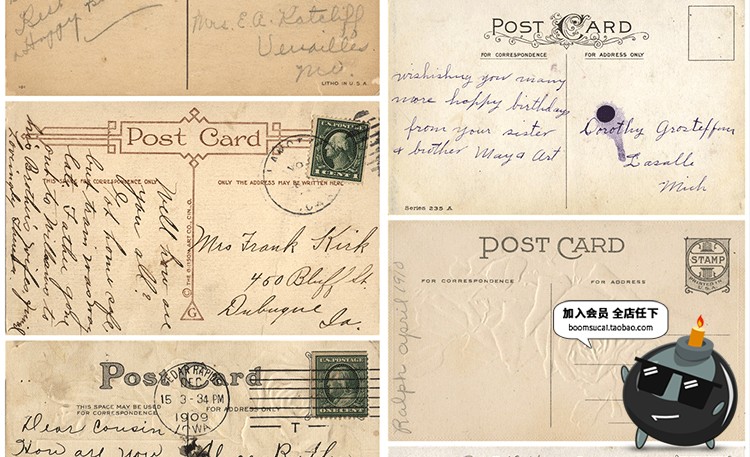 a Happy
Mrs. E.A. Ratcliff
Versailles
Mo.
LITHO IN U.S.A.
Post Card
U.S. POSTAGE
1 CENT 1
THIS SPACE FOR CORRESPONDENCE
ONLY THE ADDRESS MAY BE WRITTEN HERE
Well how are
you all?
Mrs Frank Kirk
450 Bluff St.
Dubuque
Ia.
G
Post Card
THIS SPACE MAY BE USED
FOR CORRESPONDENCE
FOR ADDRESS ONLY
CEDAR RAPIDS
DEC
15 3-34 PM
1909
IOWA
U.S. POSTAGE
ONE CENT
T
Dear Cousin
How are you
POST CARD
FOR CORRESPONDENCE
FOR ADDRESS ONLY
wishishing you many
more happy birthdays
from your sister
& brother May & Art
Dorothy Grosteffon
Lasalle
Mich
Series 235 A
POST CARD
FOR CORRESPONDENCE
FOR ADDRESS ONLY
STAMP
Ralph april 1910
加入会员 全店任下
boomsucai.taobao.com